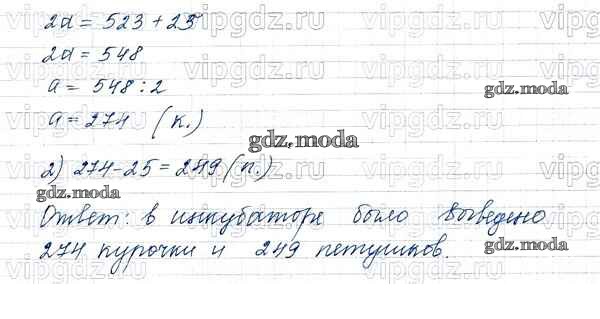 2a = 523 + 25
2a = 548
a = 548 : 2
a = 274 (к.)
2) 274 - 25 = 249 (п.)
Ответ: в инкубаторе было выведено
274 курочки и 249 петушков.
vipgdz.ru
gdz.moda
gdz.moda
gdz.moda
gdz.moda